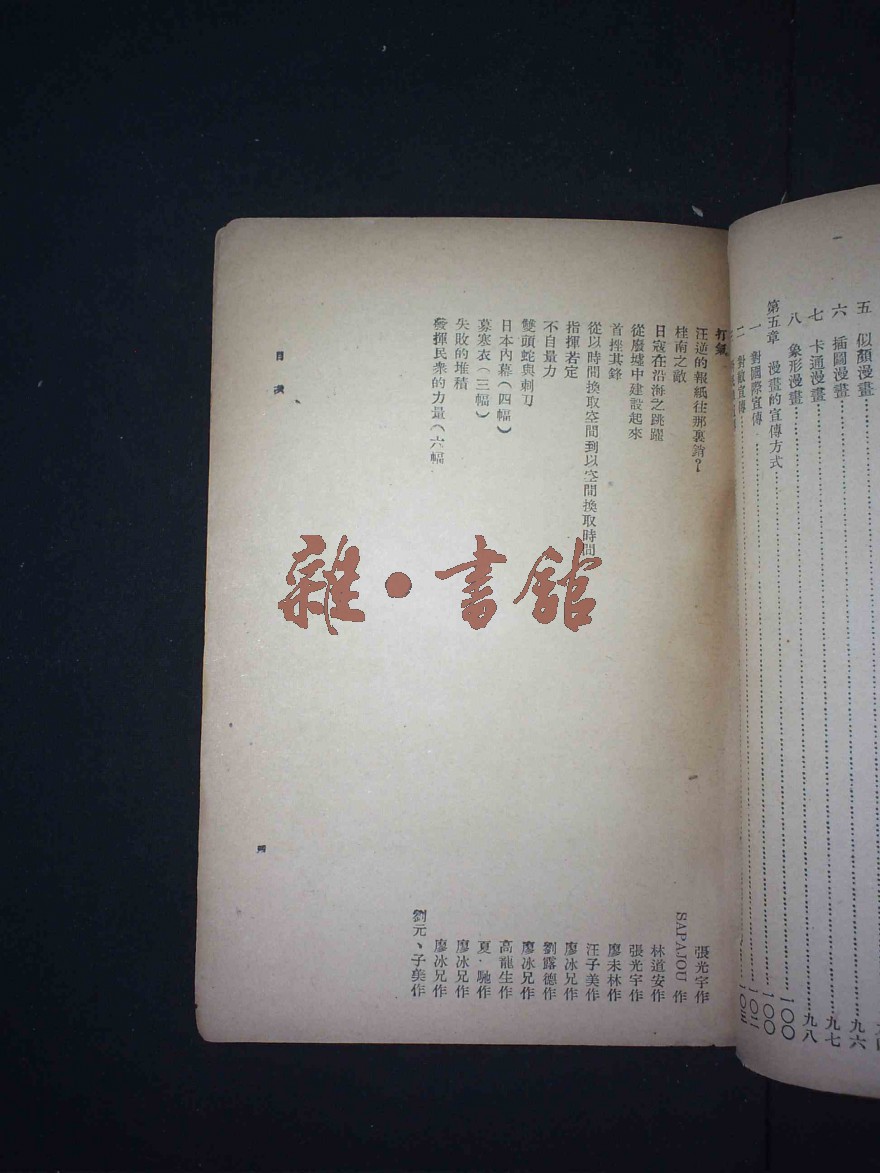 五 似顏漫畫
六 插圖漫畫……九六
七 卡通漫畫……九七
八 象形漫畫……九八
第五章 漫畫的宣傳方式……一〇〇
一 對國際宣傳……一〇〇
二 對敵宣傳……一〇二
打氣 張光宇作
汪逆的報紙往那裏銷? SAPAJOU 作
桂南之敵 林道安作
日寇在沿海之跳躍 張光宇作
從廢墟中建設起來 廖未林作
首挫其鋒 汪子美作
從以時間換取空間到以空間換取時間 廖冰兄作
指揮若定 劉露德作
不自量力 廖冰兄作
雙頭蛇與刺刀 高龍生作
日本內幕(四幅) 夏·馳作
募寒衣(三幅) 廖冰兄作
失敗的堆積 廖冰兄作
發揮民衆的力量(六幅) 劉元、子美作
目次
四
雜·書館